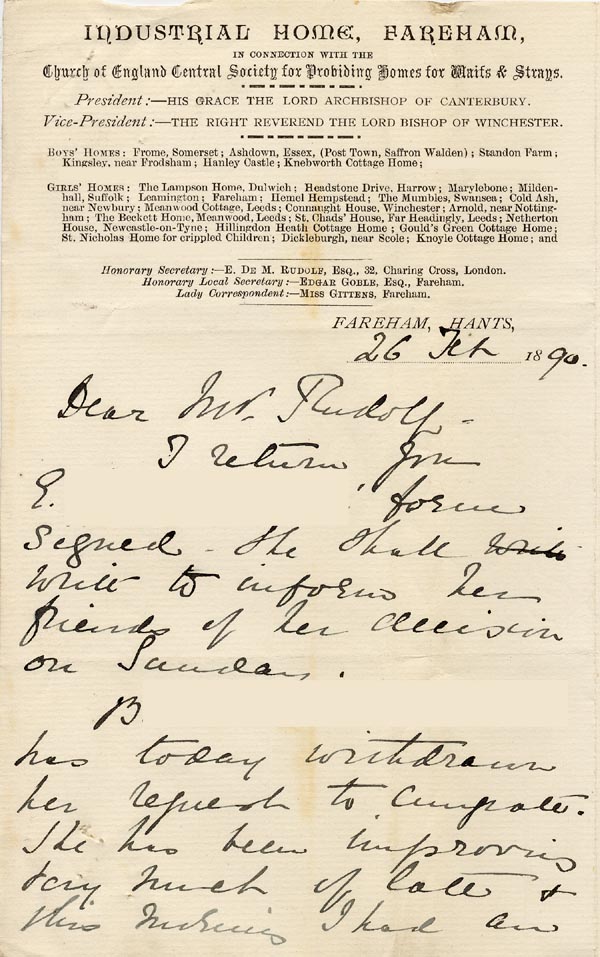 INDUSTRIAL HOME, FAREHAM,
IN CONNECTION WITH THE
Church of England Central Society for Probiding Homes for Waifs & Strays.
President:—HIS GRACE THE LORD ARCHBISHOP OF CANTERBURY.
Vice-President:—THE RIGHT REVEREND THE LORD BISHOP OF WINCHESTER.
BOYS' HOMES: Frome, Somerset; Ashdown, Essex, (Post Town, Saffron Walden); Standon Farm;
Kingsley, near Frodsham; Hanley Castle; Knebworth Cottage Home;
GIRLS' HOMES: The Lampson Home, Dulwich; Headstone Drive, Harrow; Marylebone; Milden-
hall, Suffolk; Leamington; Fareham; Hemel Hempstead; The Mumbles, Swansea; Cold Ash,
near Newbury; Meanwood Cottage, Leeds; Connaught House, Winchester; Arnold, near Notting-
ham; The Beckett Home, Meanwood, Leeds; St. Chads' House, Far Headingly, Leeds; Netherton
House, Newcastle-on-Tyne; Hillingdon Heath Cottage Home; Gould's Green Cottage Home;
St. Nicholas Home for crippled Children; Dickleburgh, near Scole; Knoyle Cottage Home; and
Honorary Secretary:—E. DE M. RUDOLF, ESQ., 32, Charing Cross, London.
Honorary Local Secretary:—EDGAR GOBLE, ESQ., Fareham.
Lady Correspondent:—MISS GITTENS, Fareham.
FAREHAM, HANTS,
26 Feb 1890.
Dear Mr. Rudolf-
I return you
E. ' form
signed - She shall write
write to inform her
friends of her decision
on Sunday.
B
has today withdrawn
her request to emigrate.
She has been improving
very much of late &
this morning I had an